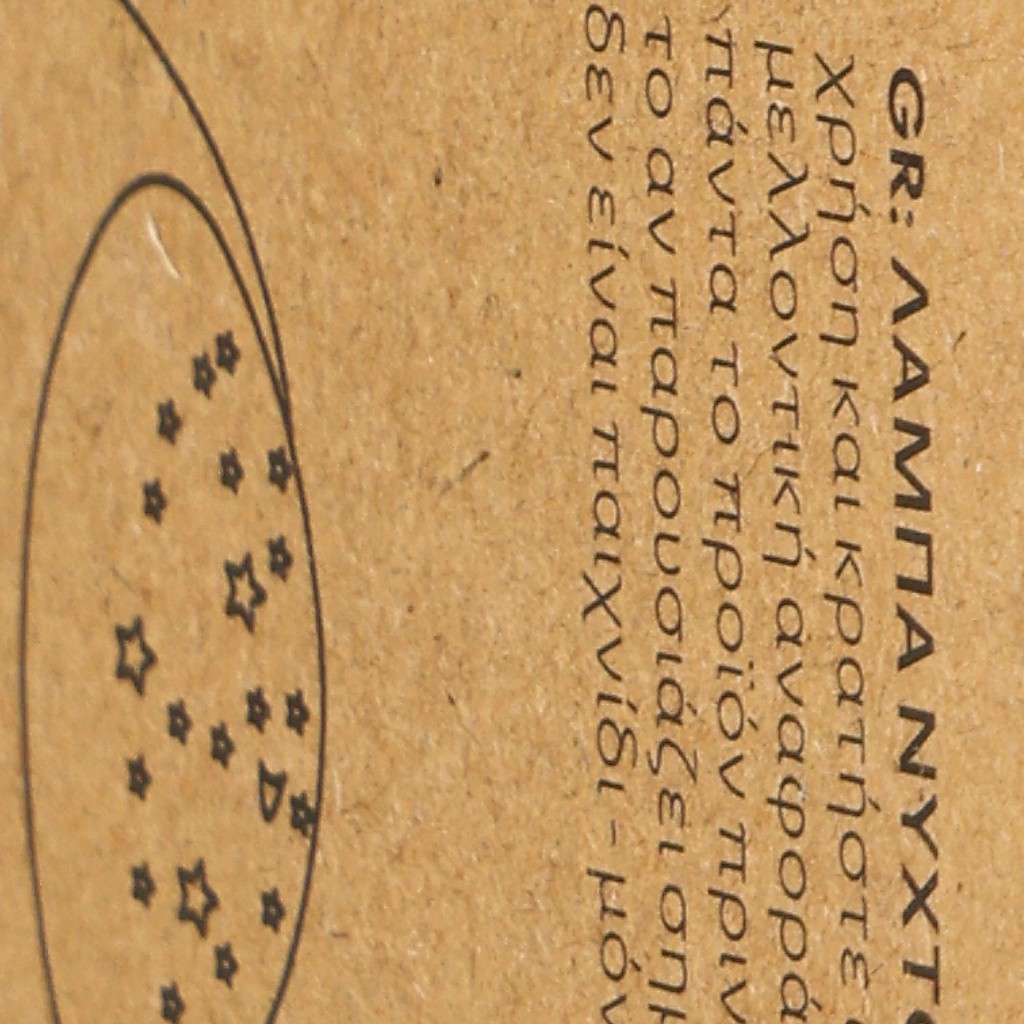 GR: ΛΑΜΠΑ ΝΥΧΤ
χρήση και κρατήστε
μελλοντική αναφορά
πάντα το προϊόν πριν
το αν παρουσιάζει ση
δεν είναι παιχνίδι - μόν